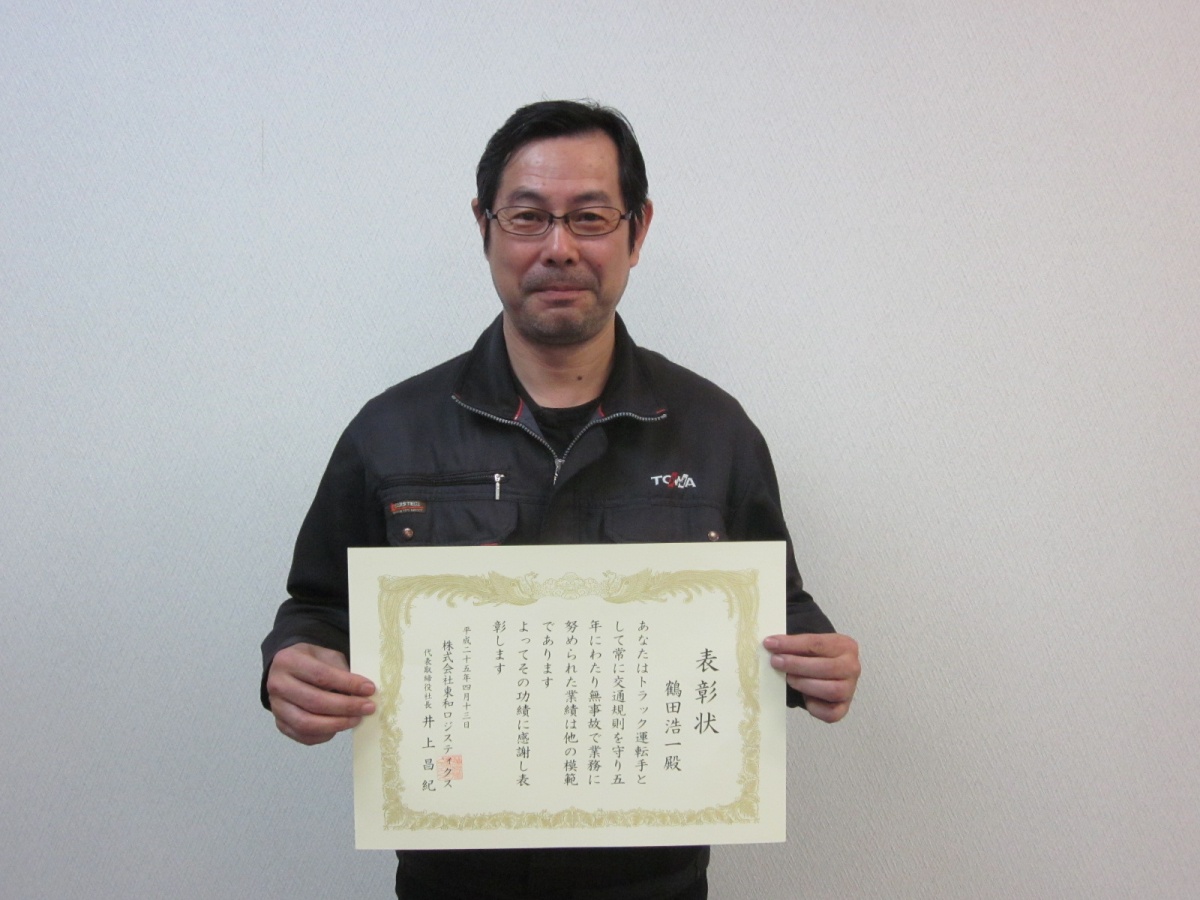 TOWA
表彰状
鶴田浩一殿
あなたはトラック運転手と
して常に交通規則を守り五
年にわたり無事故で業務に
努められた業績は他の模範
であります
よってその功績に感謝し表
彰します
平成二十五年四月十三日
株式会社東和ロジスティクス
代表取締役社長 井上昌紀